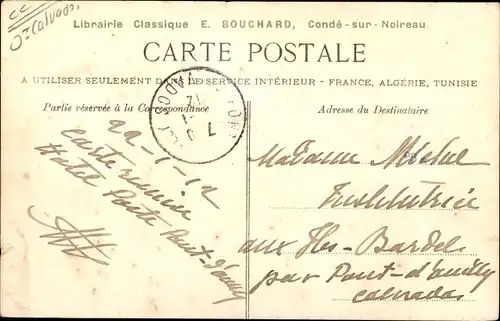 CC
Ct Calvados
Librairie Classique E. BOUCHARD, Condé-sur-Noireau.
CARTE POSTALE
A UTILISER SEULEMENT DANS LE SERVICE INTÉRIEUR - FRANCE, ALGÉRIE, TUNISIE
Partie réservée à la Correspondance
Adresse du Destinataire
22-1-12
Carte
Hotel Poste Pont-d'ouilly
Madame
Institutrice
aux Iles-Bardel
par Pont-d'ouilly
Calvados